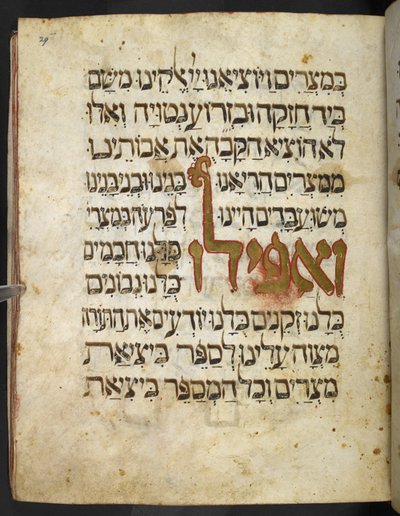 29
במצרים ויוציאנו יי אלקינו משם
ביד חזקה ובזרוע נטויה ואלו
לא הוציא הקבה את אבותינו
ממצרים הרי אנו בנינו ובני בנינו
משועבדים היינו לפרעה במצרי
ואפילו כלנו חכמים
כלנו נבונים
כלנו זקנים כלנו יודעים את התורה
מצוה עלינו לספר ביציאת
מצרים וכל המספר ביציאת